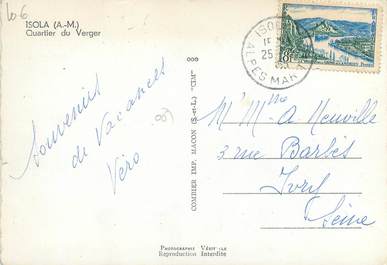 106
ISOLA (A.-M.)
Quartier du Verger
ISOLA
25
ALPES MAR
18f
Souvenirs
de Vacances
Véro
COMBIER IMP. MACON (S.-et-L.) "CIM"
M. Mme A. Neuville
3 rue Barbès
Ivry
Seine
PHOTOGRAPHIE VÉRITABLE
Reproduction Interdite